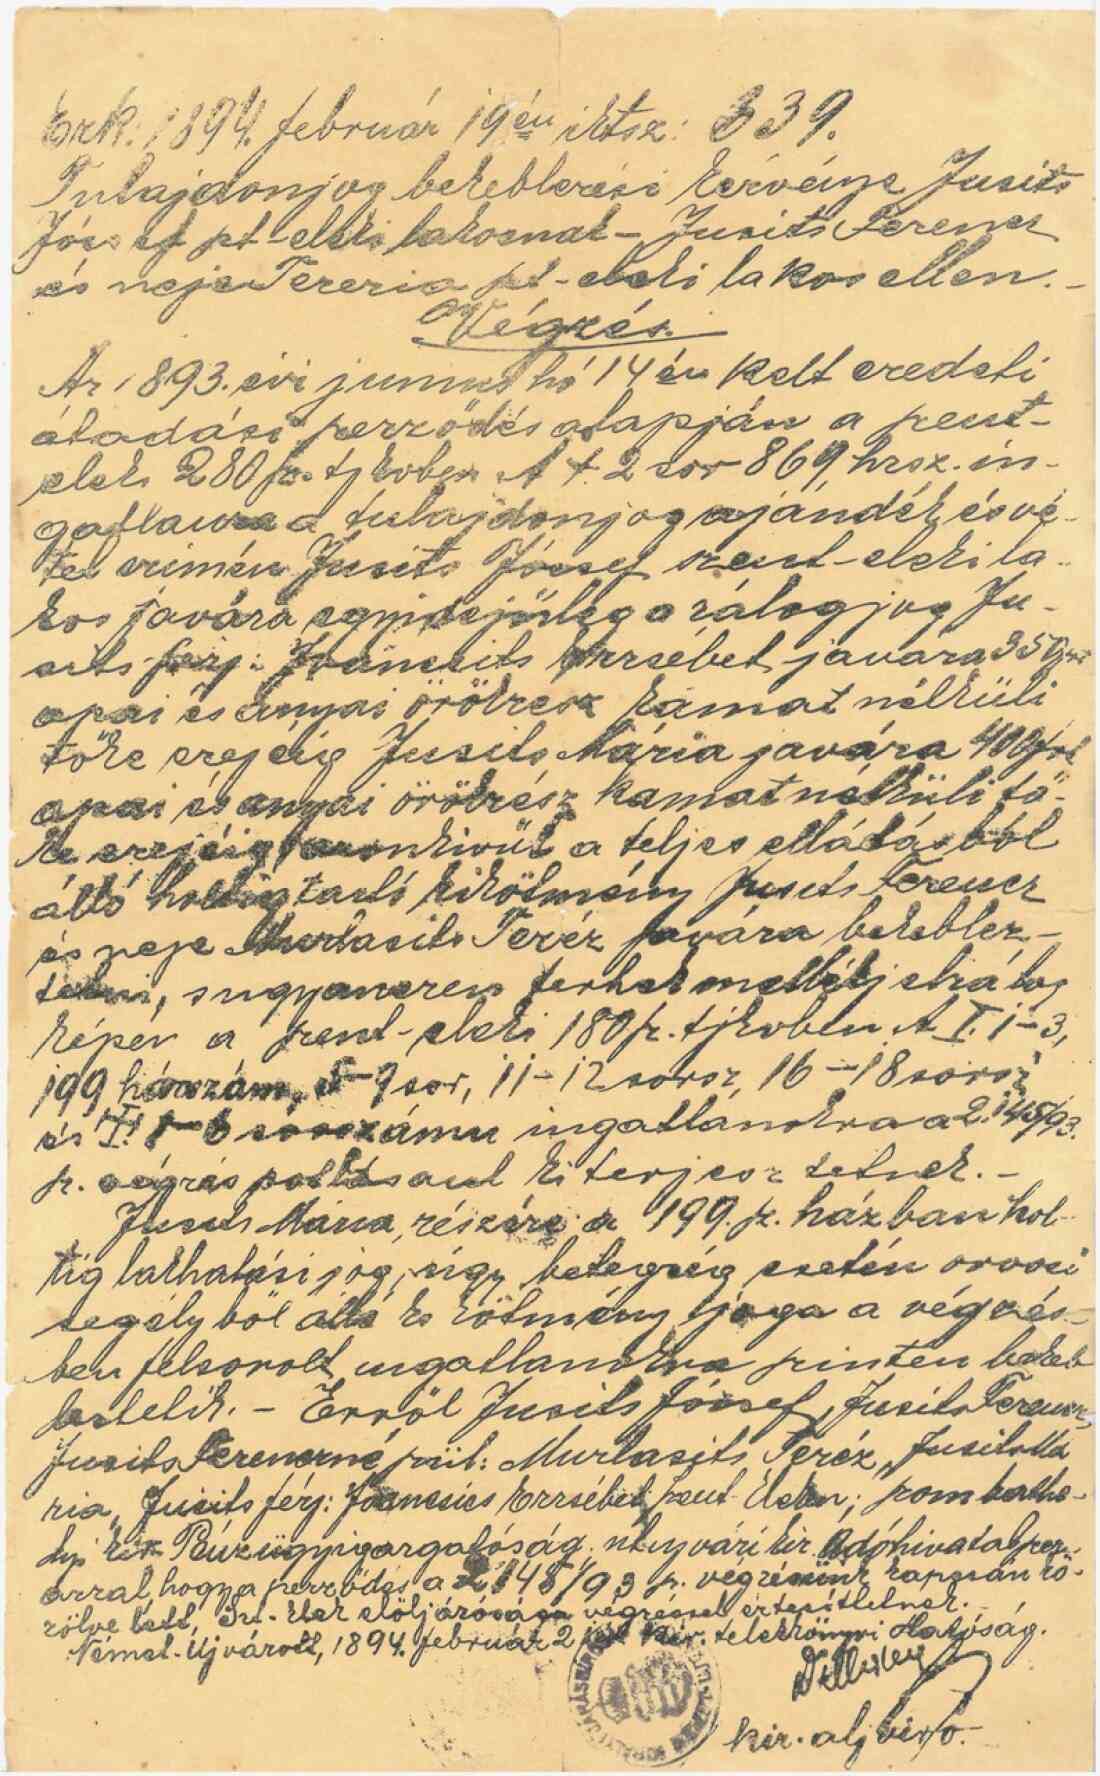 Erk: 1894. február 19én iktsz: 339.
Tulajdonjog bekeblezési kérvénye Jusits
József szt-eleki lakosnak – Jusits Ferencz
és neje Terezia szt-eleki lakos ellen. –
Végzés.
Az 1893. évi junius hó 14én kelt eredeti
átadási szerződés alapján a szent-
eleki 280 sz. tjkvben A † 2 sor 869, hrsz. in-
gatlanra a tulajdonjog ajándék és vé-
tel czimén Jusits József szent-eleki la-
kos javára egyidejűleg a zálogjog Ju-
sits férj: Ivancsits Erzsébet javára 350 frt
apai és anyai örökrész kamat nélküli
tőke erejéig Jusits Mária javára 400 frt
apai és anyai örökrész kamat nélküli tő-
ke erejéig azonkivül a teljes ellátásból
álló holtig tartó kikötmény Jusits Ferencz
és neje Murlasits Teréz javára bekeblez-
tetni, s ugyanezen terhek mellékjelzálog
képen a szent-eleki 180 sz. tjkvben A I. 1–3,
199 házszám, 5–9 sor, 11–12 sorsz, 16–18 sorsz
és † 1–6 sorszámu ingatlanokra a 2145/93.
sz. végzés potlásaul kiterjesztetnek. –
Jusits Mária, részére a 199. sz. házban hol-
tig lakhatási jog, úgy betegség esetén orvosi
segélyböl álló kikötmény joga a végzés-
ben felsorolt ingatlanokra szintén bekeb-
leztetik. – Erröl Jusits József, Jusits Ferencz,
Jusits Ferenczné szül: Murlasits Teréz, Jusits Má-
ria, Jusits férj: Ivancsics Erzsébet szent Eleken; szombathe-
lyi kir. Pénzügyigazgatóság. n. ujvári kir. Adóhivatal
azzal hogy a szerződés a 2145/93 sz. végzésünk kapcsán kö-
zölve lett, Szt-Elek elöljárósága végzéssel értesittetnek. –
Német-Ujvárott, 1894. február 2 kir. telekkönyvi Hatóság.
kir. aljbiró. –